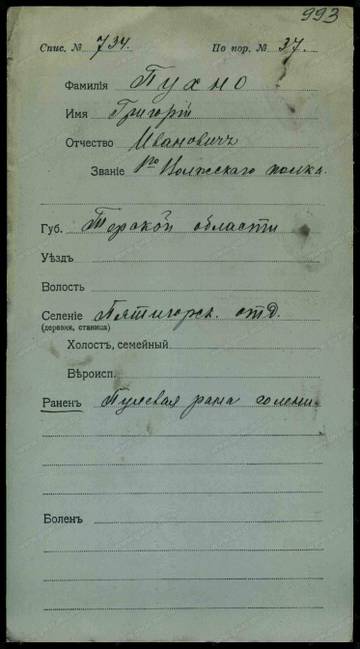 993
Спис. № 734. По пор. № 37.
Фамилія Пухно
Имя Григорій
Отчество Ивановичъ
Званіе Волжскаго полка.
Губ. Терской области
Уѣздъ
Волость
Селеніе Пятигорск. отд.
(деревня, станица)
Холостъ, семейный
Вѣроисп.
Раненъ Пулевая рана голени.
Боленъ